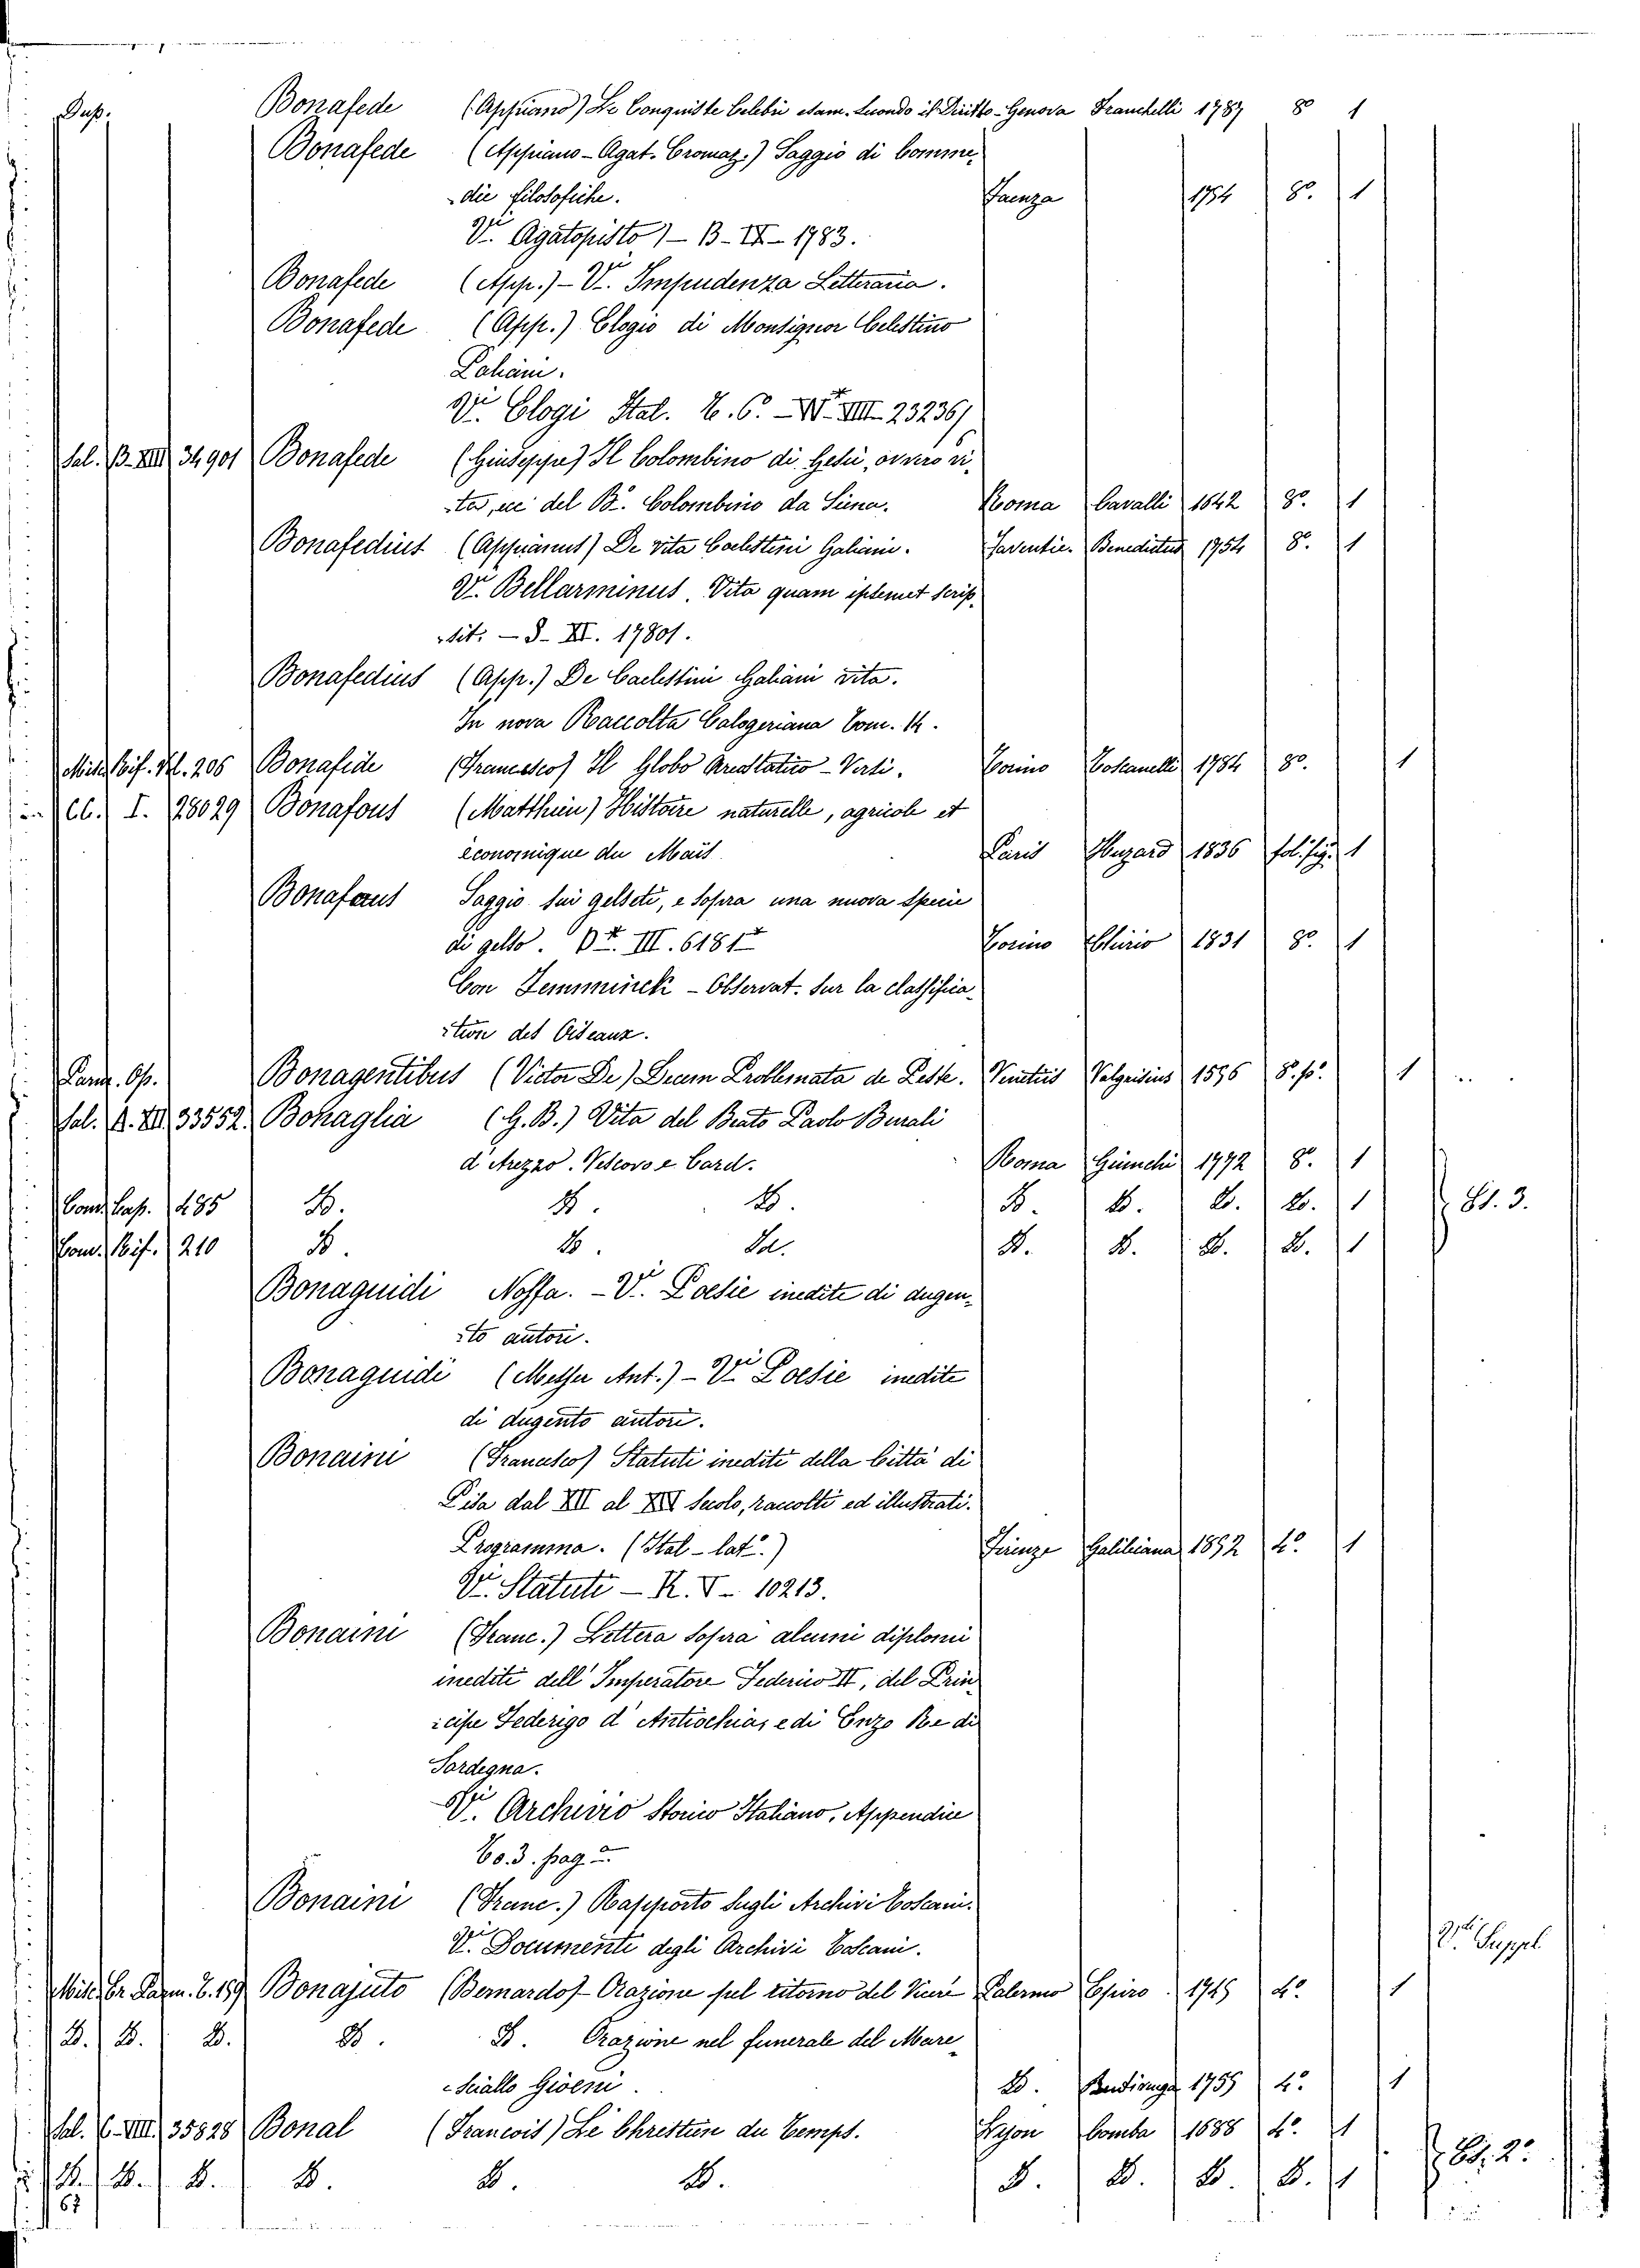 Dup. Bonafede (Appiano) Le Conquiste Celebri esam. secondo il Diritto - Genova Franchelli 1787 8º 1
Bonafede (Appiano - Agat. Cromaz.) Saggio di Comme,
die filosofiche. Faenza 1754 8º. 1
Vi. Agatopisto) - B - IX - 1783.
Bonafede (App.) - Vi. Impudenza Letteraria.
Bonafede (App.) Elogio di Monsignor Celestino
Galiani.
Vi. Elogi Ital. T. 6º. - W. VIII - 23236)
Sal. B. XIII 34901 Bonafede (Giuseppe) Il Colombino di Gesù, ovvero vi,
ta, ecc del B. Colombino da Siena. Roma Cavalli 1642 8º. 1
Bonafedius (Appianus) De vita Coelestini Galiani. Faventie. Benedictus 1754 8º. 1
Vi. Bellarminus. Vita quam ipsemet scrip,
sit. - S - XI. 17801.
Bonafedius (App.) De Caelestini Galiani vita.
In nova Raccolta Calogeriana Tom. 14.
Misc. Bif. Vol. 206 Bonafede (Francesco) Il Globo Areostatico - Versi. Torino Toscanelli 1784 8º. 1
Cb. I. 28029 Bonafous (Matthieu) Histoire naturelle, agricole et
économique du Mais Paris Huzard 1836 fol. fig. 1
Bonafous Saggio sui gelseti, e sopra una nuova specie
di gelso. III. 6181 Torino Chirio 1831 8º. 1
Con Temminck - Observat. sur la classifica,
tion des Oiseaux.
Parm. Op. Bonagentibus (Victor De) Decem Problemata de Peste. Venetiis Valgrisius 1556 8º. pº. 1
Sal. A. XII. 33552. Bonaglia (G. B.) Vita del Beato Paolo Burali
d'Arezzo. Vescovo e Card. Roma Giunchi 1772 8º. 1
Com. Cap. 485 D. D. D. D. D. D. D. 1 Es. 3.
Com. Bif. 210 D. D. Id. D. D. D. D. 1
Bonaguidi Noffa. - Vi. Poesie inedite di dugen,
to autori.
Bonaguidi (Messer Ant.) - Vi. Poesie inedite
di dugento autori.
Bonaini (Francesco) Statuti inediti della Città di
Pisa dal XII al XIV secolo, raccolti ed illustrati.
Programma. (Ital - lat.) Firenze Galileiana 1852 4º. 1
Vi. Statuti - R. V - 10213.
Bonaini (Franc.) Lettera sopra alcuni diplomi
inediti dell'Imperatore Federico II, del Prin
cipe Federigo d'Antiochia, e di Enzo Re di
Sardegna.
Vi. Archivio Storico Italiano, Appendice
To. 3. pag
Bonaini (Franc.) Rapporto sugli Archivi Toscani.
Vi. Documenti degli Archivi Toscani. Suppl
Misc. Er. Parm. T. 159 Bonajuto (Bernardo) - Orazione sul ritorno del Vicerè Palermo Epiro 1745 4º. 1
D. D. D. D. D. Orazione nel funerale del Mare,
sciallo Gioeni. D. Bentivenga 1755 4º. 1
Sal. C. VIII. 35828 Bonal (Francois) Le Chrestien du Temps. Lyon Comba 1688 4º. 1
D. D. D. D. D. D. D. D. D. D. 1 Es. 2º
67